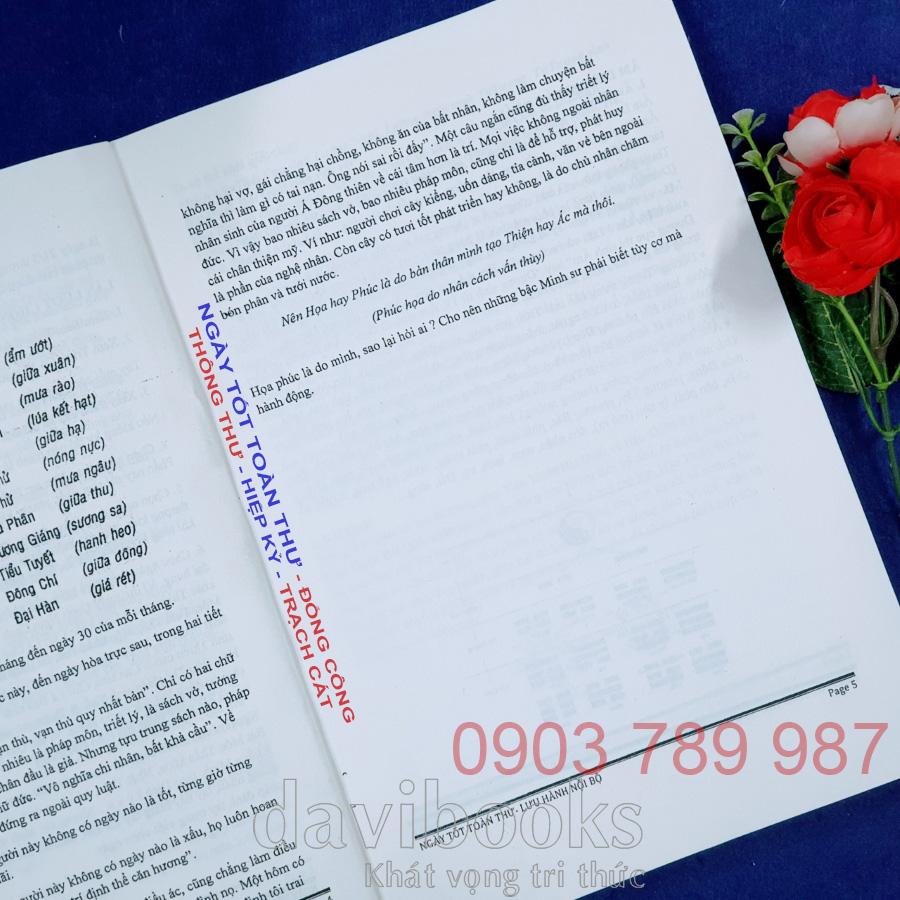 (ẩm ướt)
(giữa xuân)
(mưa rào)
(lúa kết hạt)
(giữa hạ)
(nóng nực)
(mưa ngâu)
Phân (giữa thu)
Giáng (sương sa)
Tiểu Tuyết (hanh heo)
Đông Chí (giữa đông)
Đại Hàn (giá rét)
đến ngày 30 của mỗi tháng.
này, đến ngày hòa trực sau, trong hai tiết
thù, vạn thù quy nhất bản". Chỉ có hai chữ
nhiêu là pháp môn, triết lý, là sách vở, tướng
đầu là giả. Nhưng tựu trung sách nào, pháp
đức. "Vô nghĩa chi nhân, bất khả cầu". Về
đứng ra ngoài quy luật.
này không có ngày nào là tốt, từng giờ từng
này không có ngày nào là xấu, họ luôn hoan
trí định thể căn hương".
ác, cũng chẳng làm điều
nọ. Một hôm có
tôi trai
không hại vợ, gái chẳng hại chồng, không ăn của bất nhân, không làm chuyện bất
nghĩa thì làm gì có tai nạn. Ông nói sai rồi đấy". Một câu ngắn cũng đủ thấy triết lý
nhân sinh của người Á Đông thiên về cái tâm hơn là trí. Mọi việc không ngoài nhân
đức. Vì vậy bao nhiêu sách vở, bao nhiêu pháp môn, cũng chỉ là để hỗ trợ, phát huy
cái chân thiện mỹ. Ví như: người chơi cây kiểng, uốn dáng, tỉa cành, văn vẽ bên ngoài
là phần của nghệ nhân. Còn cây có tươi tốt phát triển hay không, là do chủ nhân chăm
bón phân và tưới nước.
Nên Họa hay Phúc là do bản thân mình tạo Thiện hay Ác mà thôi.
(Phúc họa do nhân cách vấn thùy)
Họa phúc là do mình, sao lại hỏi ai ? Cho nên những bậc Minh sư phải biết tùy cơ mà
hành động.
NGÀY TỐT TOÀN THƯ - ĐỔNG CÔNG
THÔNG THƯ - HIỆP KỶ - TRẠCH CÁT
Page 5
NGÀY TỐT TOÀN THƯ- LƯU HÀNH NỘI BỘ
0903 789 987
davibooks
Khát vọng tri thức